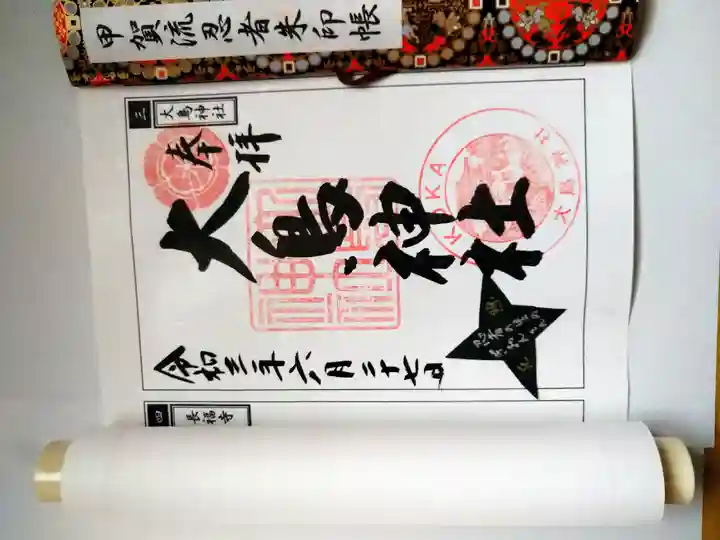 甲賀流忍者朱印帳
三 大鳥神社
奉拝
大鳥神社
KOKA
大鳥神社
令和三年六月二十七日
四 長福寺